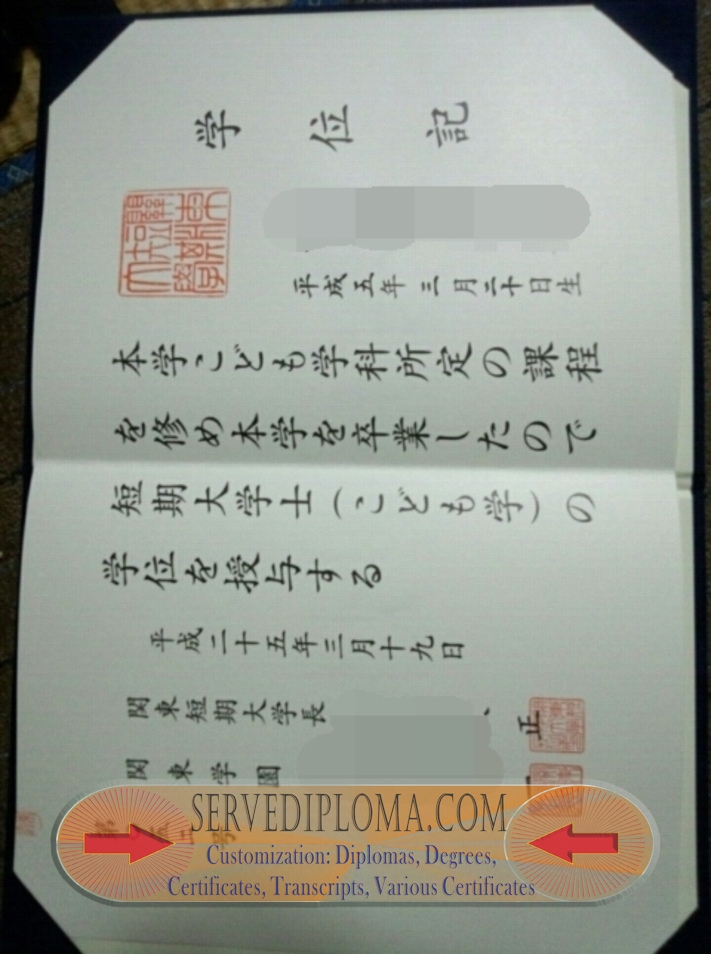 学位記
平成五年三月二十日生
本学こども学科所定の課程
を修め本学を卒業したので
短期大学士(こども学)の
学位を授与する
平成二十五年三月十九日
関東短期大学長
正
関東学園
SERVEDIPLOMA.COM
Customization: Diplomas, Degrees,
Certificates, Transcripts, Various Certificates